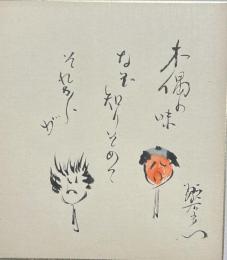 木偶の味
なまじ知りそめて
それからが